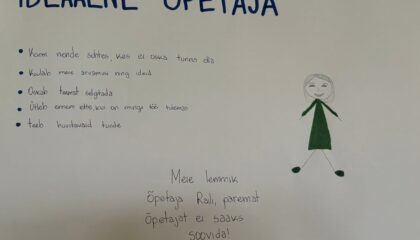 IDEAALNE ÕPETAJA
nende suhtes, kes ei oska tunnis olla
Kuulab meie arvamusi ning ideid
Oskab teemat selgitada
Ütleb ennem ette, kui on mingi töö tulemas
teeb huvitavaid tunde
Meie lemmik
Õpetaja Rali, paremat
Õpetajat ei saaks
soovida!